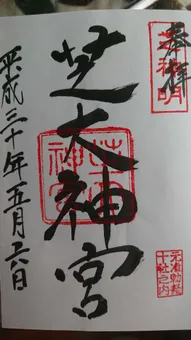 奉拝
芝大神宮
平成三十年五月六日
元准勅祭
十社之内